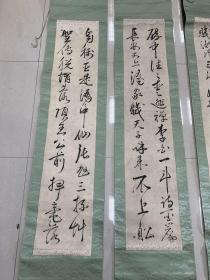 醉中往々愛逃禪李白一斗詩百篇
長安市上酒家眠天子呼來不上船
自稱臣是酒中仙張旭三杯草
聖傳脫帽露頂王公前揮毫落